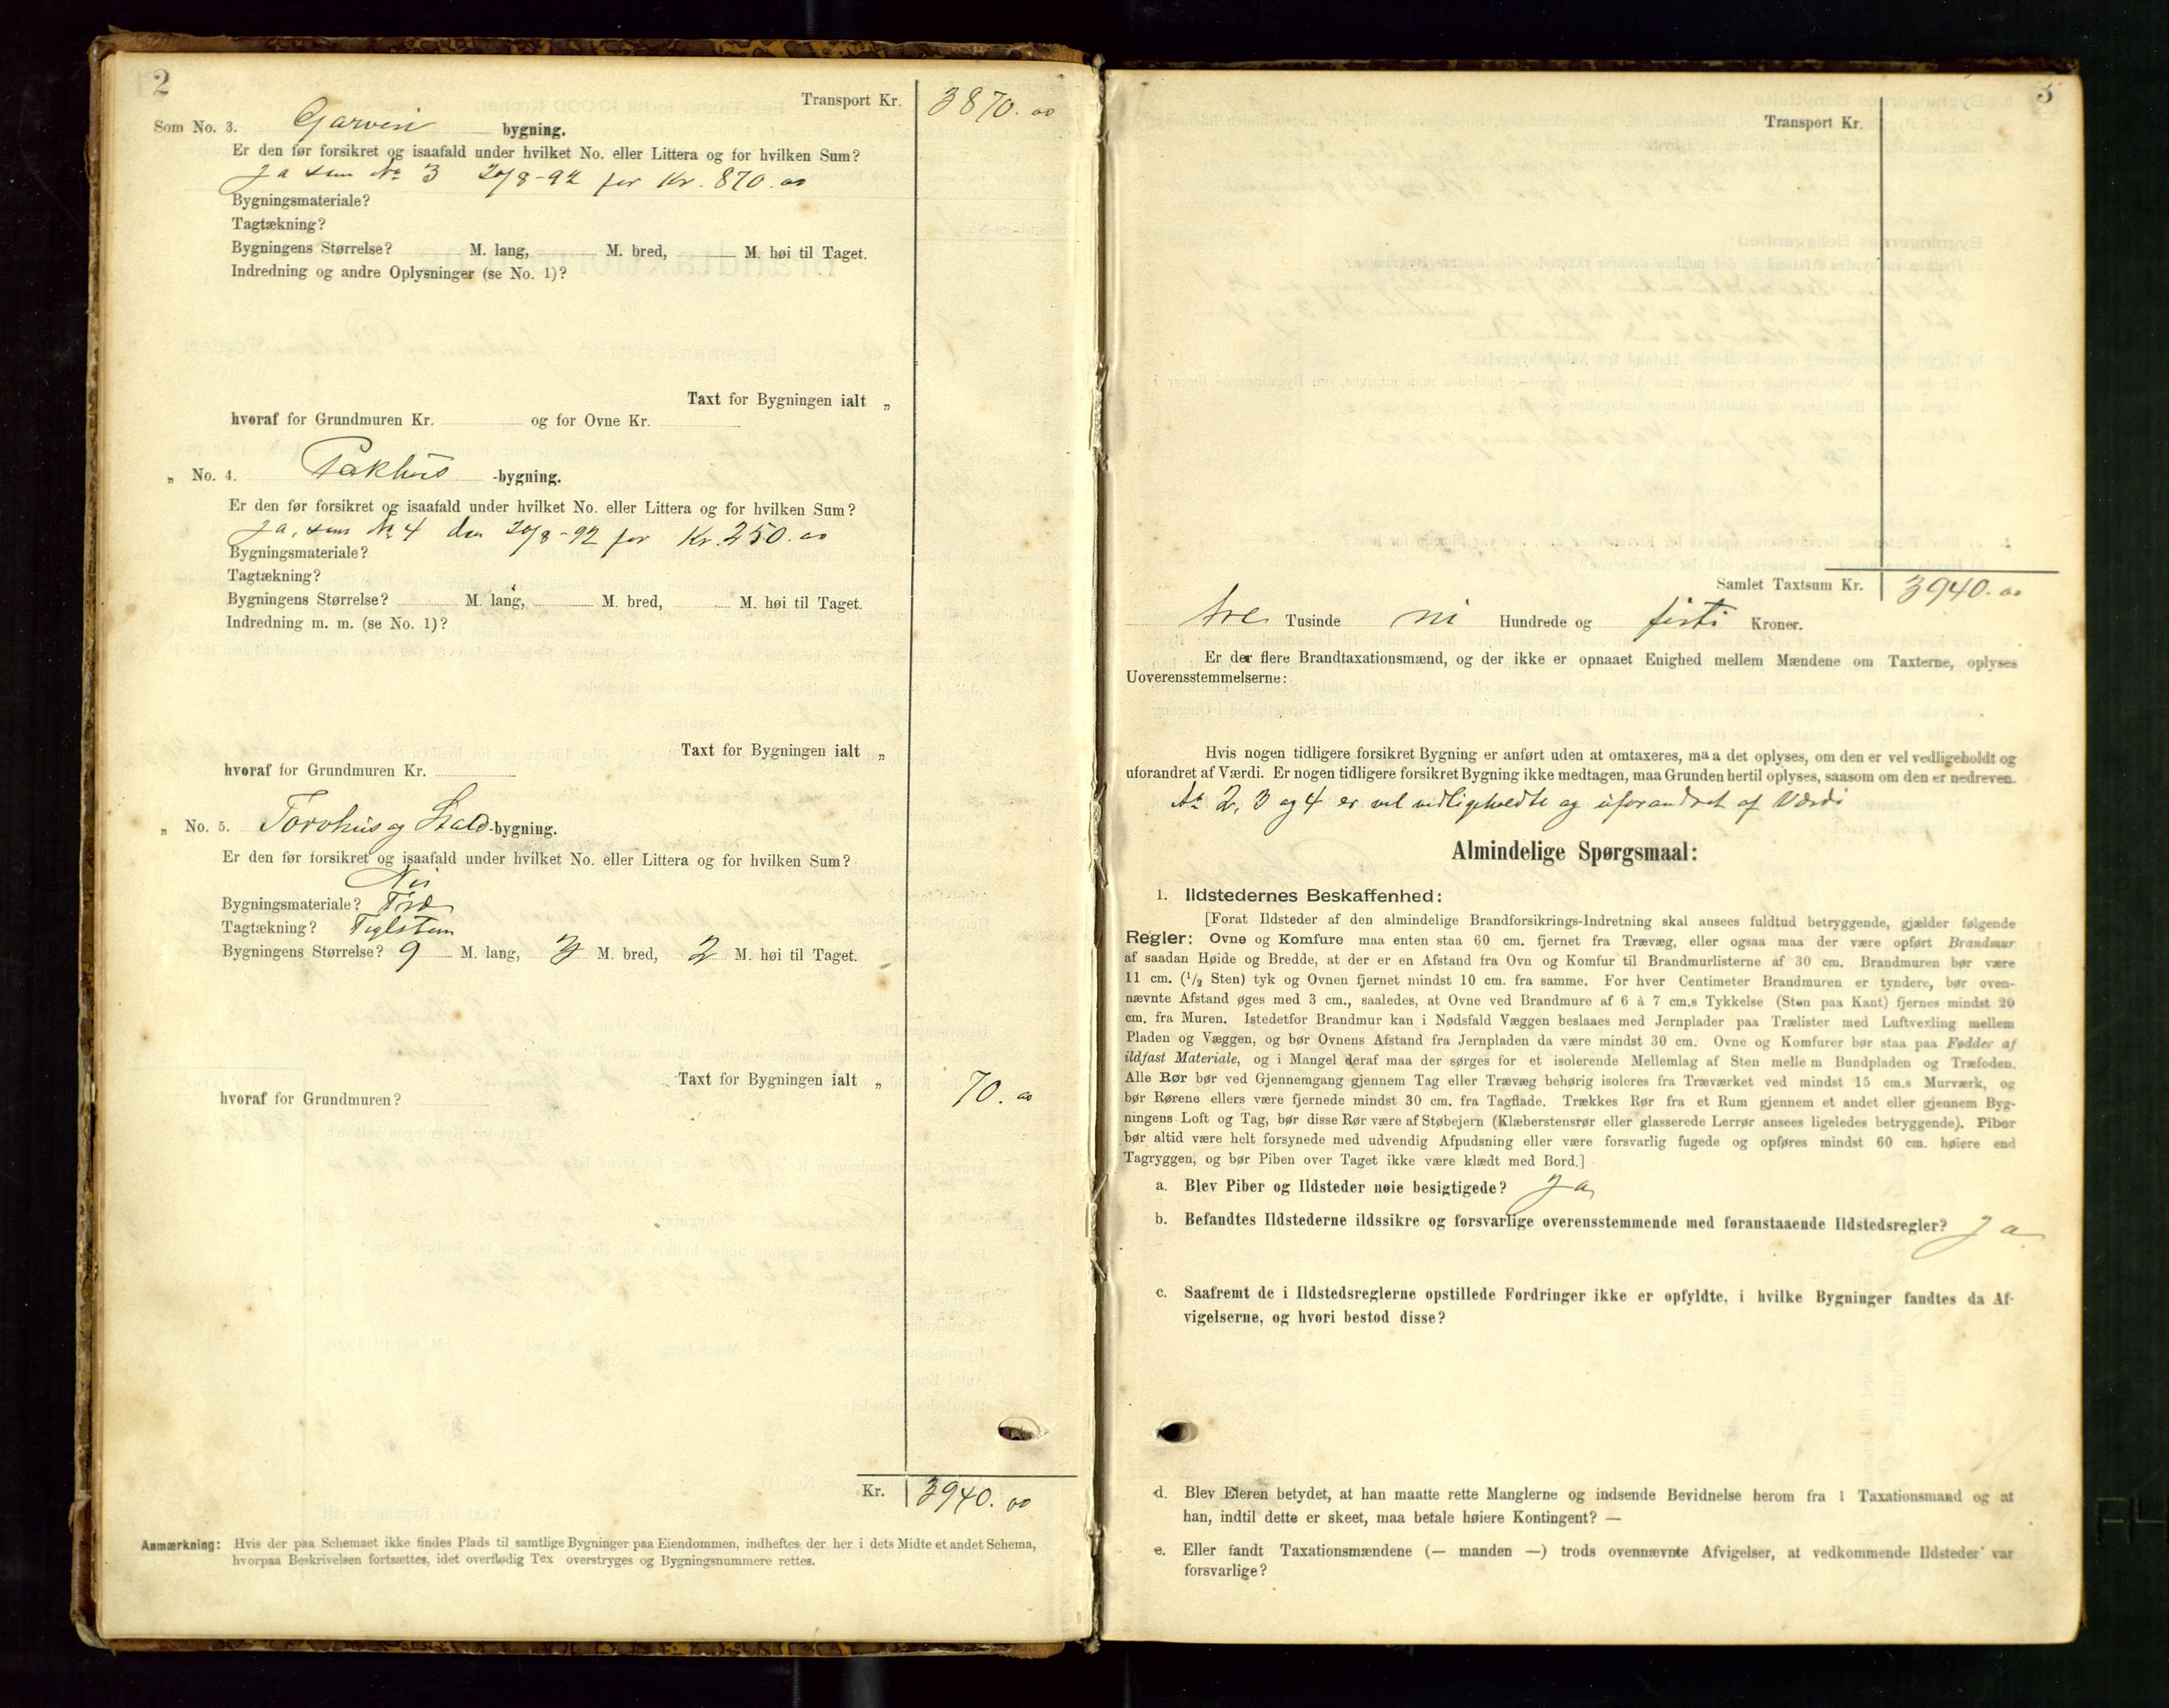 2
Transport Kr. 3870.00
Som No. 3. Garveri bygning.
Er den før forsikret og isaafald under hvilket No. eller Littera og for hvilken Sum?
Ja som № 3 20/8-92 for Kr. 870.00
Bygningsmateriale?
Tagtækning?
Bygningens Størrelse? M. lang, M. bred, M. høi til Taget.
Indredning og andre Oplysninger (se No. 1)?
Taxt for Bygningen ialt „
hvoraf for Grundmuren Kr. og for Ovne Kr.
„ No. 4. Pakhus -bygning.
Er den før forsikret og isaafald under hvilket No. eller Littera og for hvilken Sum?
Ja, som № 4 den 20/8-92 for Kr. 250.00
Bygningsmateriale?
Tagtækning?
Bygningens Størrelse? M. lang, M. bred, M. høi til Taget.
Indredning m. m. (se No. 1)?
Taxt for Bygningen ialt „
hvoraf for Grundmuren Kr.
„ No. 5. Torvhus og Stald-bygning.
Er den før forsikret og isaafald under hvilket No. eller Littera og for hvilken Sum?
Nei
Bygningsmateriale? Træ
Tagtækning? Teglsten
Bygningens Størrelse? 9 M. lang, 3 M. bred, 2 M. høi til Taget.
Taxt for Bygningen ialt „ 70.00
hvoraf for Grundmuren?
Kr. 3940.00
Anmærkning: Hvis der paa Schemaet ikke findes Plads til samtlige Bygninger paa Eiendommen, indheftes der her i dets Midte et andet Schema,
hvorpaa Beskrivelsen fortsættes, idet overflødig Tex overstryges og Bygningsnummere rettes.
3
Transport Kr.
Samlet Taxtsum Kr. 3940.00
tre Tusinde ni Hundrede og firti Kroner.
Er der flere Brandtaxationsmænd, og der ikke er opnaaet Enighed mellem Mændene om Taxterne, oplyses
Uoverensstemmelserne:
Hvis nogen tidligere forsikret Bygning er anført uden at omtaxeres, maa det oplyses, om den er vel vedligeholdt og
uforandret af Værdi. Er nogen tidligere forsikret Bygning ikke medtagen, maa Grunden hertil oplyses, saasom om den er nedreven.
№ 2, 3 og 4 er vel vedligeholdte og uforandret af Værdi
Almindelige Spørgsmaal:
1. Ildstedernes Beskaffenhed:
[Forat Ildsteder af den almindelige Brandforsikrings-Indretning skal ansees fuldtud betryggende, gjælder følgende
Regler: Ovne og Komfure maa enten staa 60 cm. fjernet fra Trævæg, eller ogsaa maa der være opført Brandmur
af saadan Høide og Bredde, at der er en Afstand fra Ovn og Komfur til Brandmurlisterne af 30 cm. Brandmuren bør være
11 cm. (1/2 Sten) tyk og Ovnen fjernet mindst 10 cm. fra samme. For hver Centimeter Brandmuren er tyndere, bør oven-
nævnte Afstand øges med 3 cm., saaledes, at Ovne ved Brandmure af 6 à 7 cm.s Tykkelse (Sten paa Kant) fjernes mindst 20
cm. fra Muren. Istedetfor Brandmur kan i Nødsfald Væggen beslaaes med Jernplader paa Trælister med Luftvexling mellem
Pladen og Væggen, og bør Ovnens Afstand fra Jernpladen da være mindst 30 cm. Ovne og Komfurer bør staa paa Fødder af
ildfast Materiale, og i Mangel deraf maa der sørges for et isolerende Mellemlag af Sten mellem Bundpladen og Træfoden.
Alle Rør bør ved Gjennemgang gjennem Tag eller Trævæg behørig isoleres fra Træværket ved mindst 15 cm.s Murværk, og
bør Rørene ellers være fjernede mindst 30 cm. fra Tagflade. Trækkes Rør fra et Rum gjennem et andet eller gjennem Byg-
ningens Loft og Tag, bør disse Rør være af Støbejern (Klæberstensrør eller glasserede Lerrør ansees ligeledes betryggende). Piber
bør altid være helt forsynede med udvendig Afpudsning eller være forsvarlig fugede og opføres mindst 60 cm. høiere end
Tagryggen, og bør Piben over Taget ikke være klædt med Bord.]
a. Blev Piber og Ildsteder nøie besigtigede? Ja
b. Befandtes Ildstederne ildssikre og forsvarlige overensstemmende med foranstaaende Ildstedsregler? Ja
c. Saafremt de i Ildstedsreglerne opstillede Fordringer ikke er opfyldte, i hvilke Bygninger fandtes da Af-
vigelserne, og hvori bestod disse?
d. Blev Eieren betydet, at han maatte rette Manglerne og indsende Bevidnelse herom fra 1 Taxationsmand og at
han, indtil dette er skeet, maa betale høiere Kontingent? —
e. Eller fandt Taxationsmændene (— manden —) trods ovennævnte Afvigelser, at vedkommende Ildsteder var
forsvarlige?